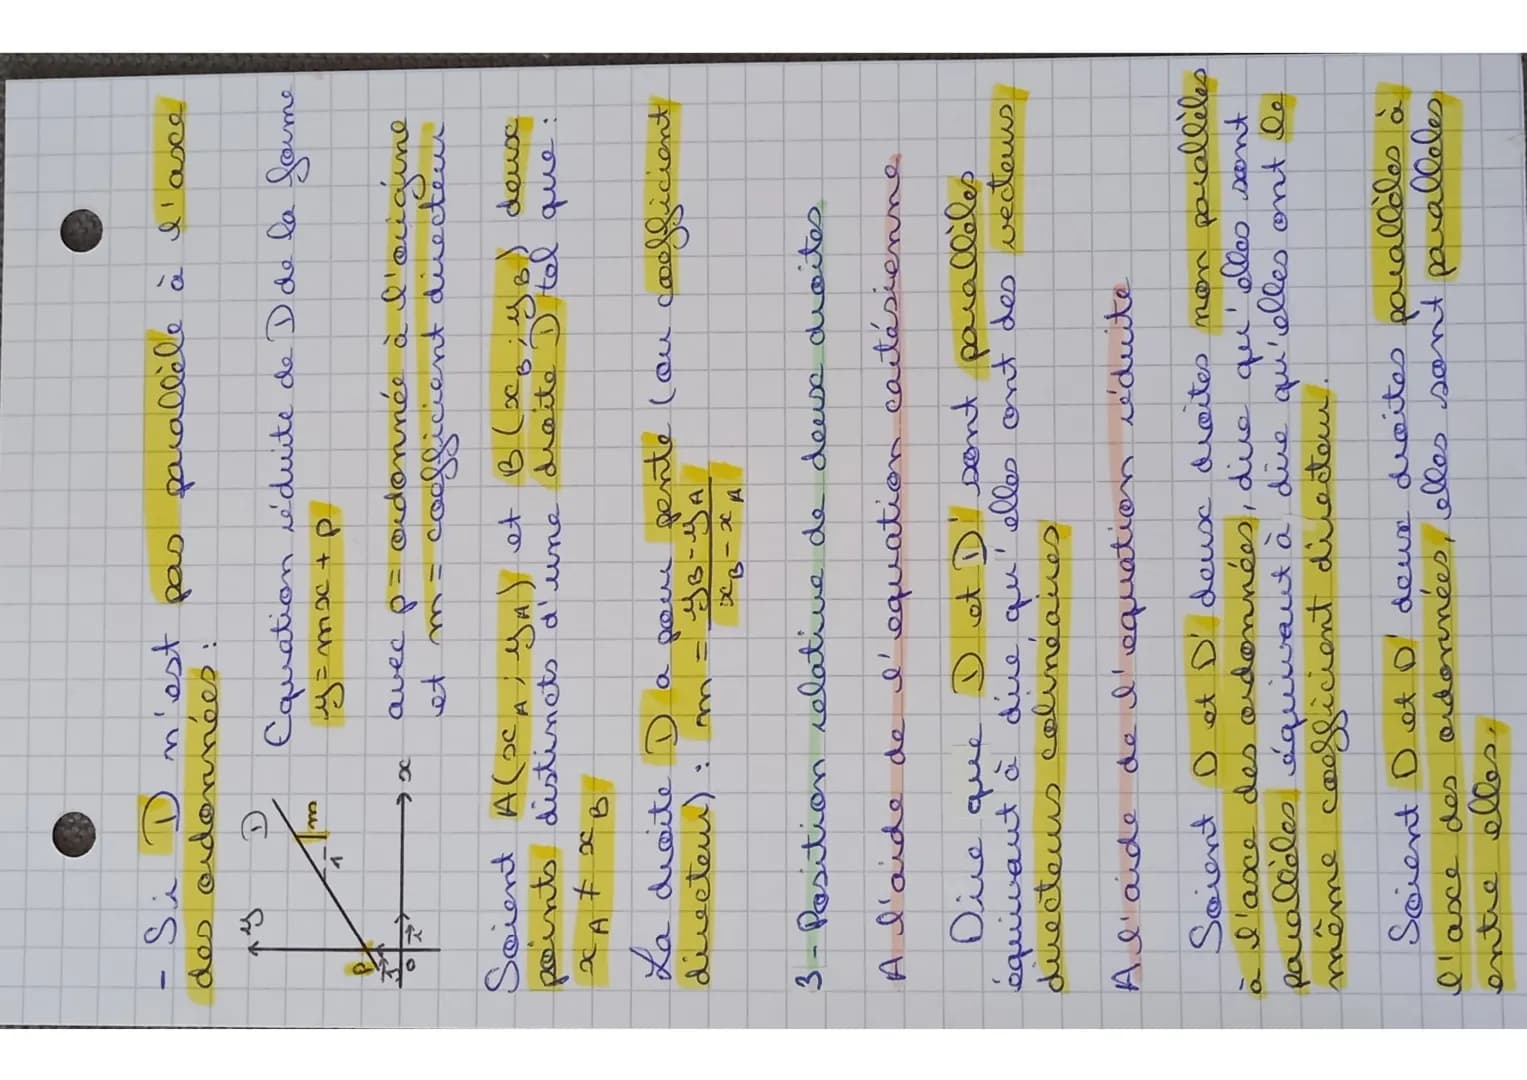 - Si D n'est pas parallèle à l'axe
des ordonnées :
Equation réduite de D de la forme
y = mx + p
avec p = ordonné à l'origine
et m = coefficient directeur
y
D
m
1
p
j
O
i
x
Soient A(xA ; yA) et B(xB ; yB) deux
points distincts d'une droite D tel que :
xA ≠ xB
La droite D a pour pente (ou coefficient
directeur) : m = yB - yA / xB - xA
3 - Position relative de deux droites
A l'aide de l'équation cartésienne
Dire que D et D' sont parallèles
équivaut à dire qu'elles ont des vecteurs
directeurs colinéaires
A l'aide de l'équation réduite
Soient D et D' deux droites non parallèles
à l'axe des ordonnées, dire qu'elles sont
parallèles équivaut à dire qu'elles ont le
même coefficient directeur.
Soient D et D' deux droites parallèles à
l'axe des ordonnées, elles sont parallèles
entre elles.